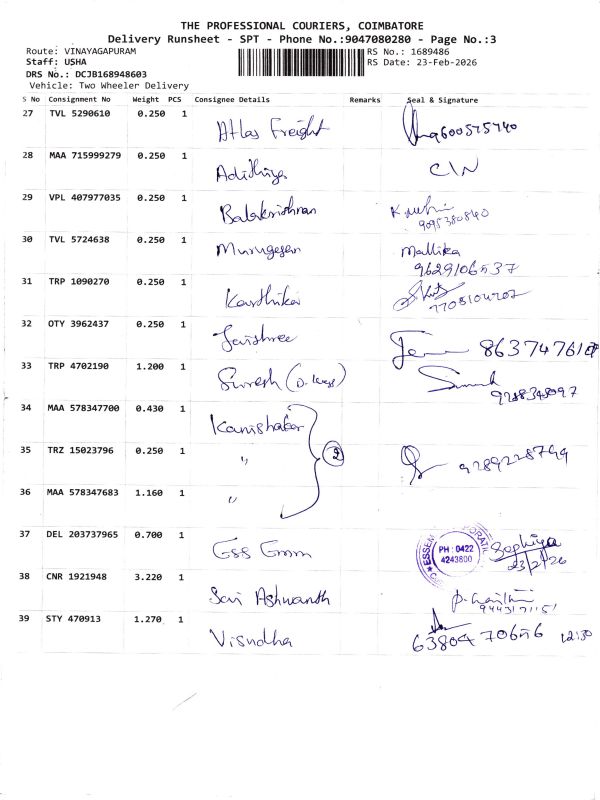 THE PROFESSIONAL COURIERS, COIMBATORE
Delivery Runsheet - SPT - Phone No.:9047080280 - Page No.:3
Route: VINAYAGAPURAM RS No.: 1689486
Staff: USHA RS Date: 23-Feb-2026
DRS No.: DCJB168948603
Vehicle: Two Wheeler Delivery
S No Consignment No Weight PCS Consignee Details Remarks Seal & Signature
27 TVL 5290610 0.250 1 Atlas Freight 9600575740
28 MAA 715999279 0.250 1 Adithiya CIN
29 VPL 407977035 0.250 1 Balakrishnan
9095380840
30 TVL 5724638 0.250 1 Murugesan Mallika
9629106537
31 TRP 1090270 0.250 1 Karthika
7708104202
32 OTY 3962437 0.250 1 Jaishree
33 TRP 4702190 1.200 1 Suresh
34 MAA 578347700 0.430 1 Kanishakar
35 TRZ 15023796 0.250 1 " 2 9289228799
36 MAA 578347683 1.160 1 "
37 DEL 203737965 0.700 1 Ess Emm ESSEM PH : 0422 4243800 Sophiya
23/2/26
38 CNR 1921948 3.220 1 Sai Ashwanth
9443171151
39 STY 470913 1.270 1 Visudha 63804 70656 12:30